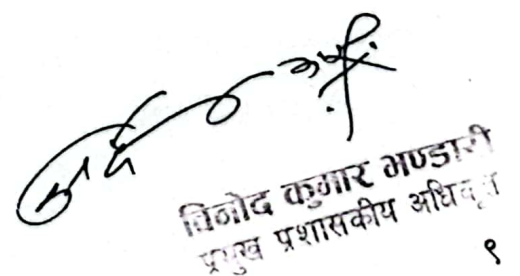 विनोद कुमार भण्डारी
प्रमुख प्रशासकीय अधिकृत
९